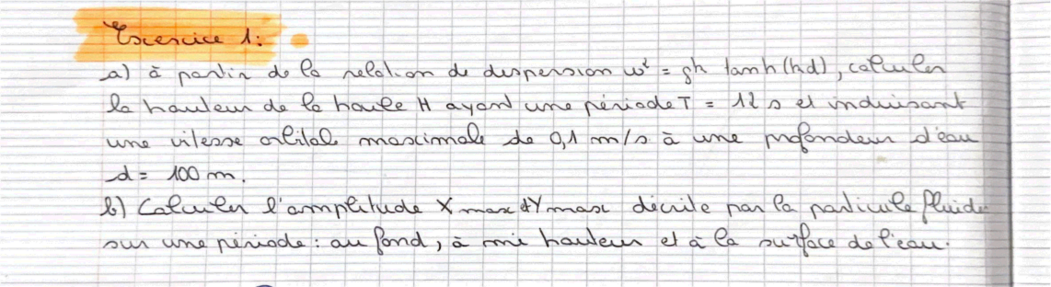 Exercice 1:
a) à partir de la relation de dispersion ω² = gk tanh(kd), calculer
la hauteur de la houle H ayant une période T = 12 s et induisant
une vitesse orbital maximale de 0,1 m/s à une profondeur d'eau
d = 100 m.
b) Calculer l'amplitude X max et Y max décrite par la particule fluide
sur une période : au fond, à mi hauteur et à la surface de l'eau.